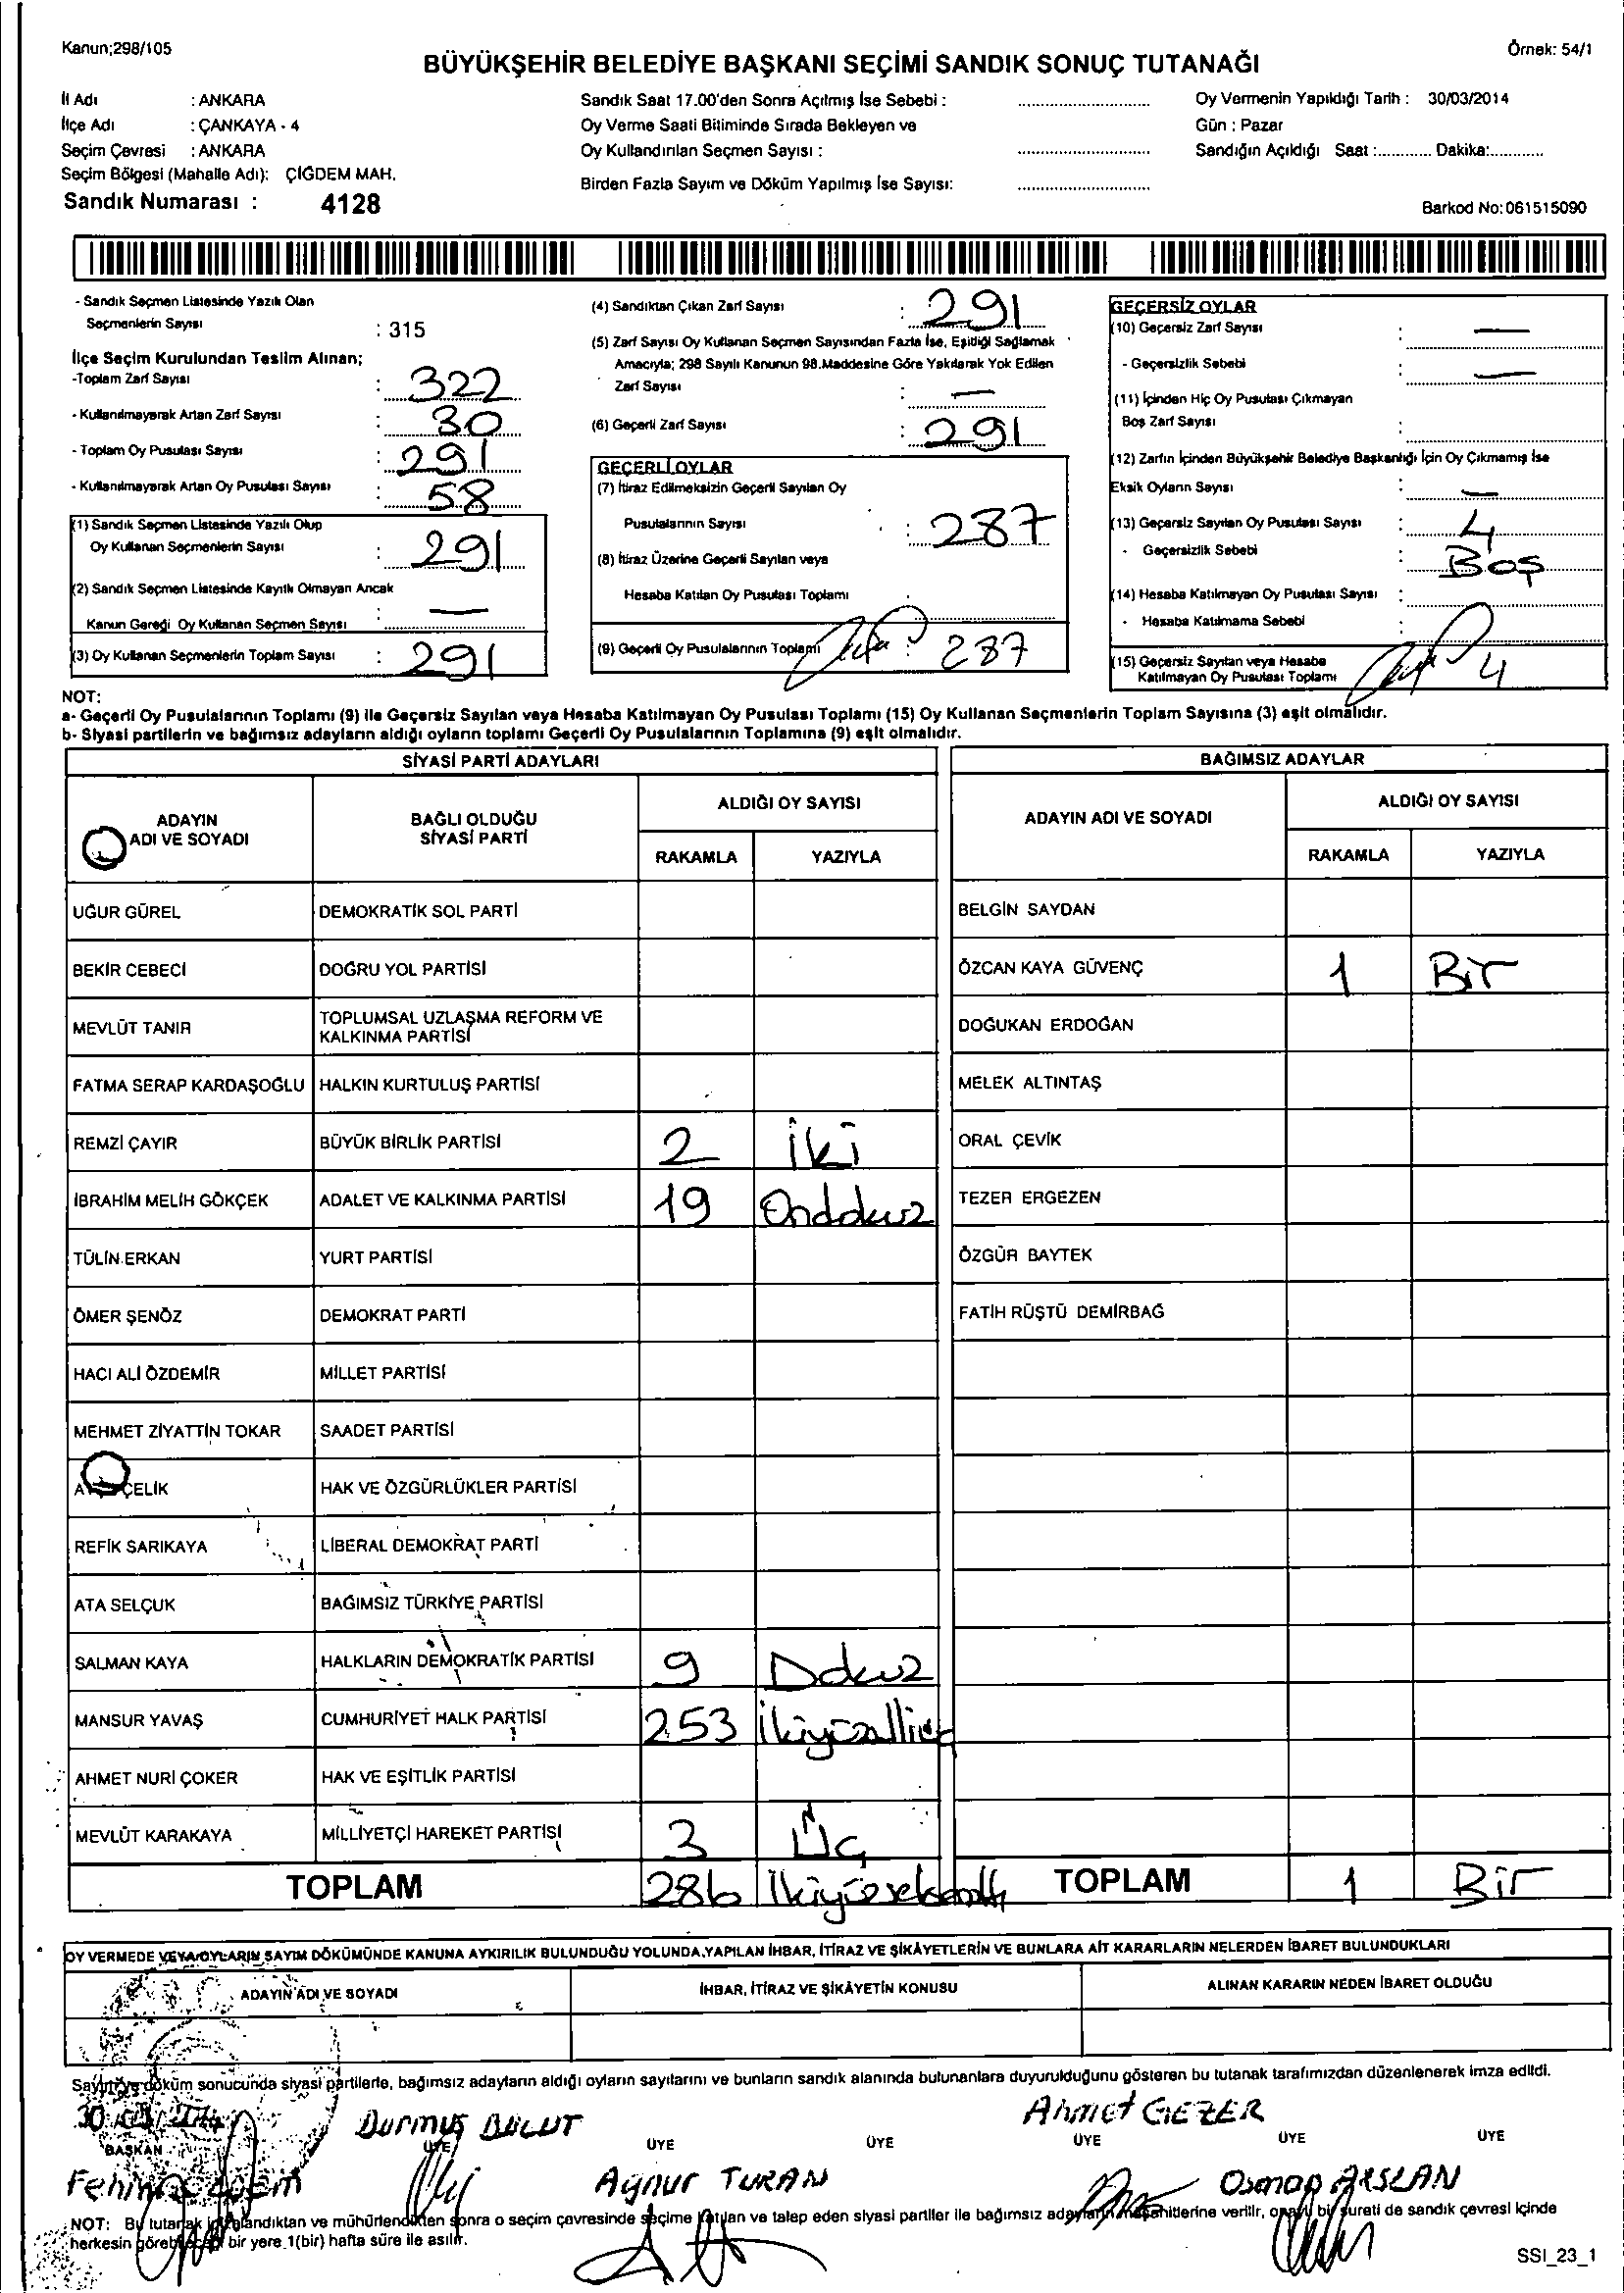 Kanun;298/105
Örnek: 54/1
BÜYÜKŞEHİR BELEDİYE BAŞKANI SEÇİMİ SANDIK SONUÇ TUTANAĞI
İl Adı : ANKARA
İlçe Adı : ÇANKAYA - 4
Seçim Çevresi : ANKARA
Seçim Bölgesi (Mahalle Adı): ÇİĞDEM MAH.
Sandık Numarası : 4128
Sandık Saat 17.00'den Sonra Açılmış İse Sebebi :
Oy Verme Saati Bitiminde Sırada Bekleyen ve
Oy Kullandırılan Seçmen Sayısı :
Birden Fazla Sayım ve Döküm Yapılmış İse Sayısı:
Oy Vermenin Yapıldığı Tarih : 30/03/2014
Gün : Pazar
Sandığın Açıldığı Saat :............ Dakika:............
Barkod No:061515090
- Sandık Seçmen Listesinde Yazılı Olan
Seçmenlerin Sayısı : 315
İlçe Seçim Kurulundan Teslim Alınan;
-Toplam Zarf Sayısı : 322
- Kullanılmayarak Artan Zarf Sayısı : 30
- Toplam Oy Pusulası Sayısı : 291
- Kullanılmayarak Artan Oy Pusulası Sayısı : 58
(1) Sandık Seçmen Listesinde Yazılı Olup
Oy Kullanan Seçmenlerin Sayısı : 291
(2) Sandık Seçmen Listesinde Kayıtlı Olmayan Ancak
Kanun Gereği Oy Kullanan Seçmen Sayısı : —
(3) Oy Kullanan Seçmenlerin Toplam Sayısı : 291
(4) Sandıktan Çıkan Zarf Sayısı : 291
(5) Zarf Sayısı Oy Kullanan Seçmen Sayısından Fazla İse, Eşitliği Sağlamak
Amacıyla; 298 Sayılı Kanunun 98.Maddesine Göre Yakılarak Yok Edilen
Zarf Sayısı : —
(6) Geçerli Zarf Sayısı : 291
GEÇERLİ OYLAR
(7) İtiraz Edilmeksizin Geçerli Sayılan Oy
Pusulalarının Sayısı : 287
(8) İtiraz Üzerine Geçerli Sayılan veya
Hesaba Katılan Oy Pusulası Toplamı :
(9) Geçerli Oy Pusulalarının Toplamı : 287
GEÇERSİZ OYLAR
(10) Geçersiz Zarf Sayısı : —
- Geçersizlik Sebebi : —
(11) İçinden Hiç Oy Pusulası Çıkmayan
Boş Zarf Sayısı :
(12) Zarfın İçinden Büyükşehir Belediye Başkanlığı İçin Oy Çıkmamış İse
Eksik Oyların Sayısı : —
(13) Geçersiz Sayılan Oy Pusulası Sayısı : 4
- Geçersizlik Sebebi : Boş
(14) Hesaba Katılmayan Oy Pusulası Sayısı :
- Hesaba Katılmama Sebebi :
(15) Geçersiz Sayılan veya Hesaba
Katılmayan Oy Pusulası Toplamı 4
NOT:
a- Geçerli Oy Pusulalarının Toplamı (9) ile Geçersiz Sayılan veya Hesaba Katılmayan Oy Pusulası Toplamı (15) Oy Kullanan Seçmenlerin Toplam Sayısına (3) eşit olmalıdır.
b- Siyasi partilerin ve bağımsız adayların aldığı oyların toplamı Geçerli Oy Pusulalarının Toplamına (9) eşit olmalıdır.
SİYASİ PARTİ ADAYLARI
ADAYIN ADI VE SOYADI
BAĞLI OLDUĞU SİYASİ PARTİ
ALDIĞI OY SAYISI
RAKAMLA YAZIYLA
UĞUR GÜREL DEMOKRATİK SOL PARTİ
BEKİR CEBECİ DOĞRU YOL PARTİSİ
MEVLÜT TANIR TOPLUMSAL UZLAŞMA REFORM VE KALKINMA PARTİSİ
FATMA SERAP KARDAŞOĞLU HALKIN KURTULUŞ PARTİSİ
REMZİ ÇAYIR BÜYÜK BİRLİK PARTİSİ 2 iki
İBRAHİM MELİH GÖKÇEK ADALET VE KALKINMA PARTİSİ 19 Ondokuz
TÜLİN ERKAN YURT PARTİSİ
ÖMER ŞENÖZ DEMOKRAT PARTİ
HACI ALİ ÖZDEMİR MİLLET PARTİSİ
MEHMET ZİYATTİN TOKAR SAADET PARTİSİ
ÇELİK HAK VE ÖZGÜRLÜKLER PARTİSİ
REFİK SARIKAYA LİBERAL DEMOKRAT PARTİ
ATA SELÇUK BAĞIMSIZ TÜRKİYE PARTİSİ
SALMAN KAYA HALKLARIN DEMOKRATİK PARTİSİ 9 Dokuz
MANSUR YAVAŞ CUMHURİYET HALK PARTİSİ 253 ikiyüzelliüç
AHMET NURİ ÇOKER HAK VE EŞİTLİK PARTİSİ
MEVLÜT KARAKAYA MİLLİYETÇİ HAREKET PARTİSİ 3 Üç
TOPLAM 286 ikiyüzseksenaltı
BAĞIMSIZ ADAYLAR
ADAYIN ADI VE SOYADI
ALDIĞI OY SAYISI
RAKAMLA YAZIYLA
BELGİN SAYDAN
ÖZCAN KAYA GÜVENÇ 1 Bir
DOĞUKAN ERDOĞAN
MELEK ALTINTAŞ
ORAL ÇEVİK
TEZER ERGEZEN
ÖZGÜR BAYTEK
FATİH RÜŞTÜ DEMİRBAĞ
TOPLAM 1 Bir
OY VERMEDE VEYA OYLARIN SAYIM DÖKÜMÜNDE KANUNA AYKIRILIK BULUNDUĞU YOLUNDA YAPILAN İHBAR, İTİRAZ VE ŞİKÂYETLERİN VE BUNLARA AİT KARARLARIN NELERDEN İBARET BULUNDUKLARI
ADAYIN ADI VE SOYADI
İHBAR, İTİRAZ VE ŞİKÂYETİN KONUSU
ALINAN KARARIN NEDEN İBARET OLDUĞU
Sayım ve döküm sonucunda siyasi partilerle, bağımsız adayların aldığı oyların sayılarını ve bunların sandık alanında bulunanlara duyurulduğunu gösteren bu tutanak tarafımızdan düzenlenerek imza edildi.
Durmuş BULUT Ahmet GEZER
BAŞKAN ÜYE ÜYE ÜYE ÜYE ÜYE ÜYE
Aynur TURAN Osman ARSLAN
NOT: Bu tutanak imzalandıktan ve mühürlendikten sonra o seçim çevresinde seçime katılan ve talep eden siyasi partiler ile bağımsız adayların müşahitlerine verilir, onaylı bir sureti de sandık çevresi içinde
herkesin görebileceği bir yere 1(bir) hafta süre ile asılır.
SSI_23_1